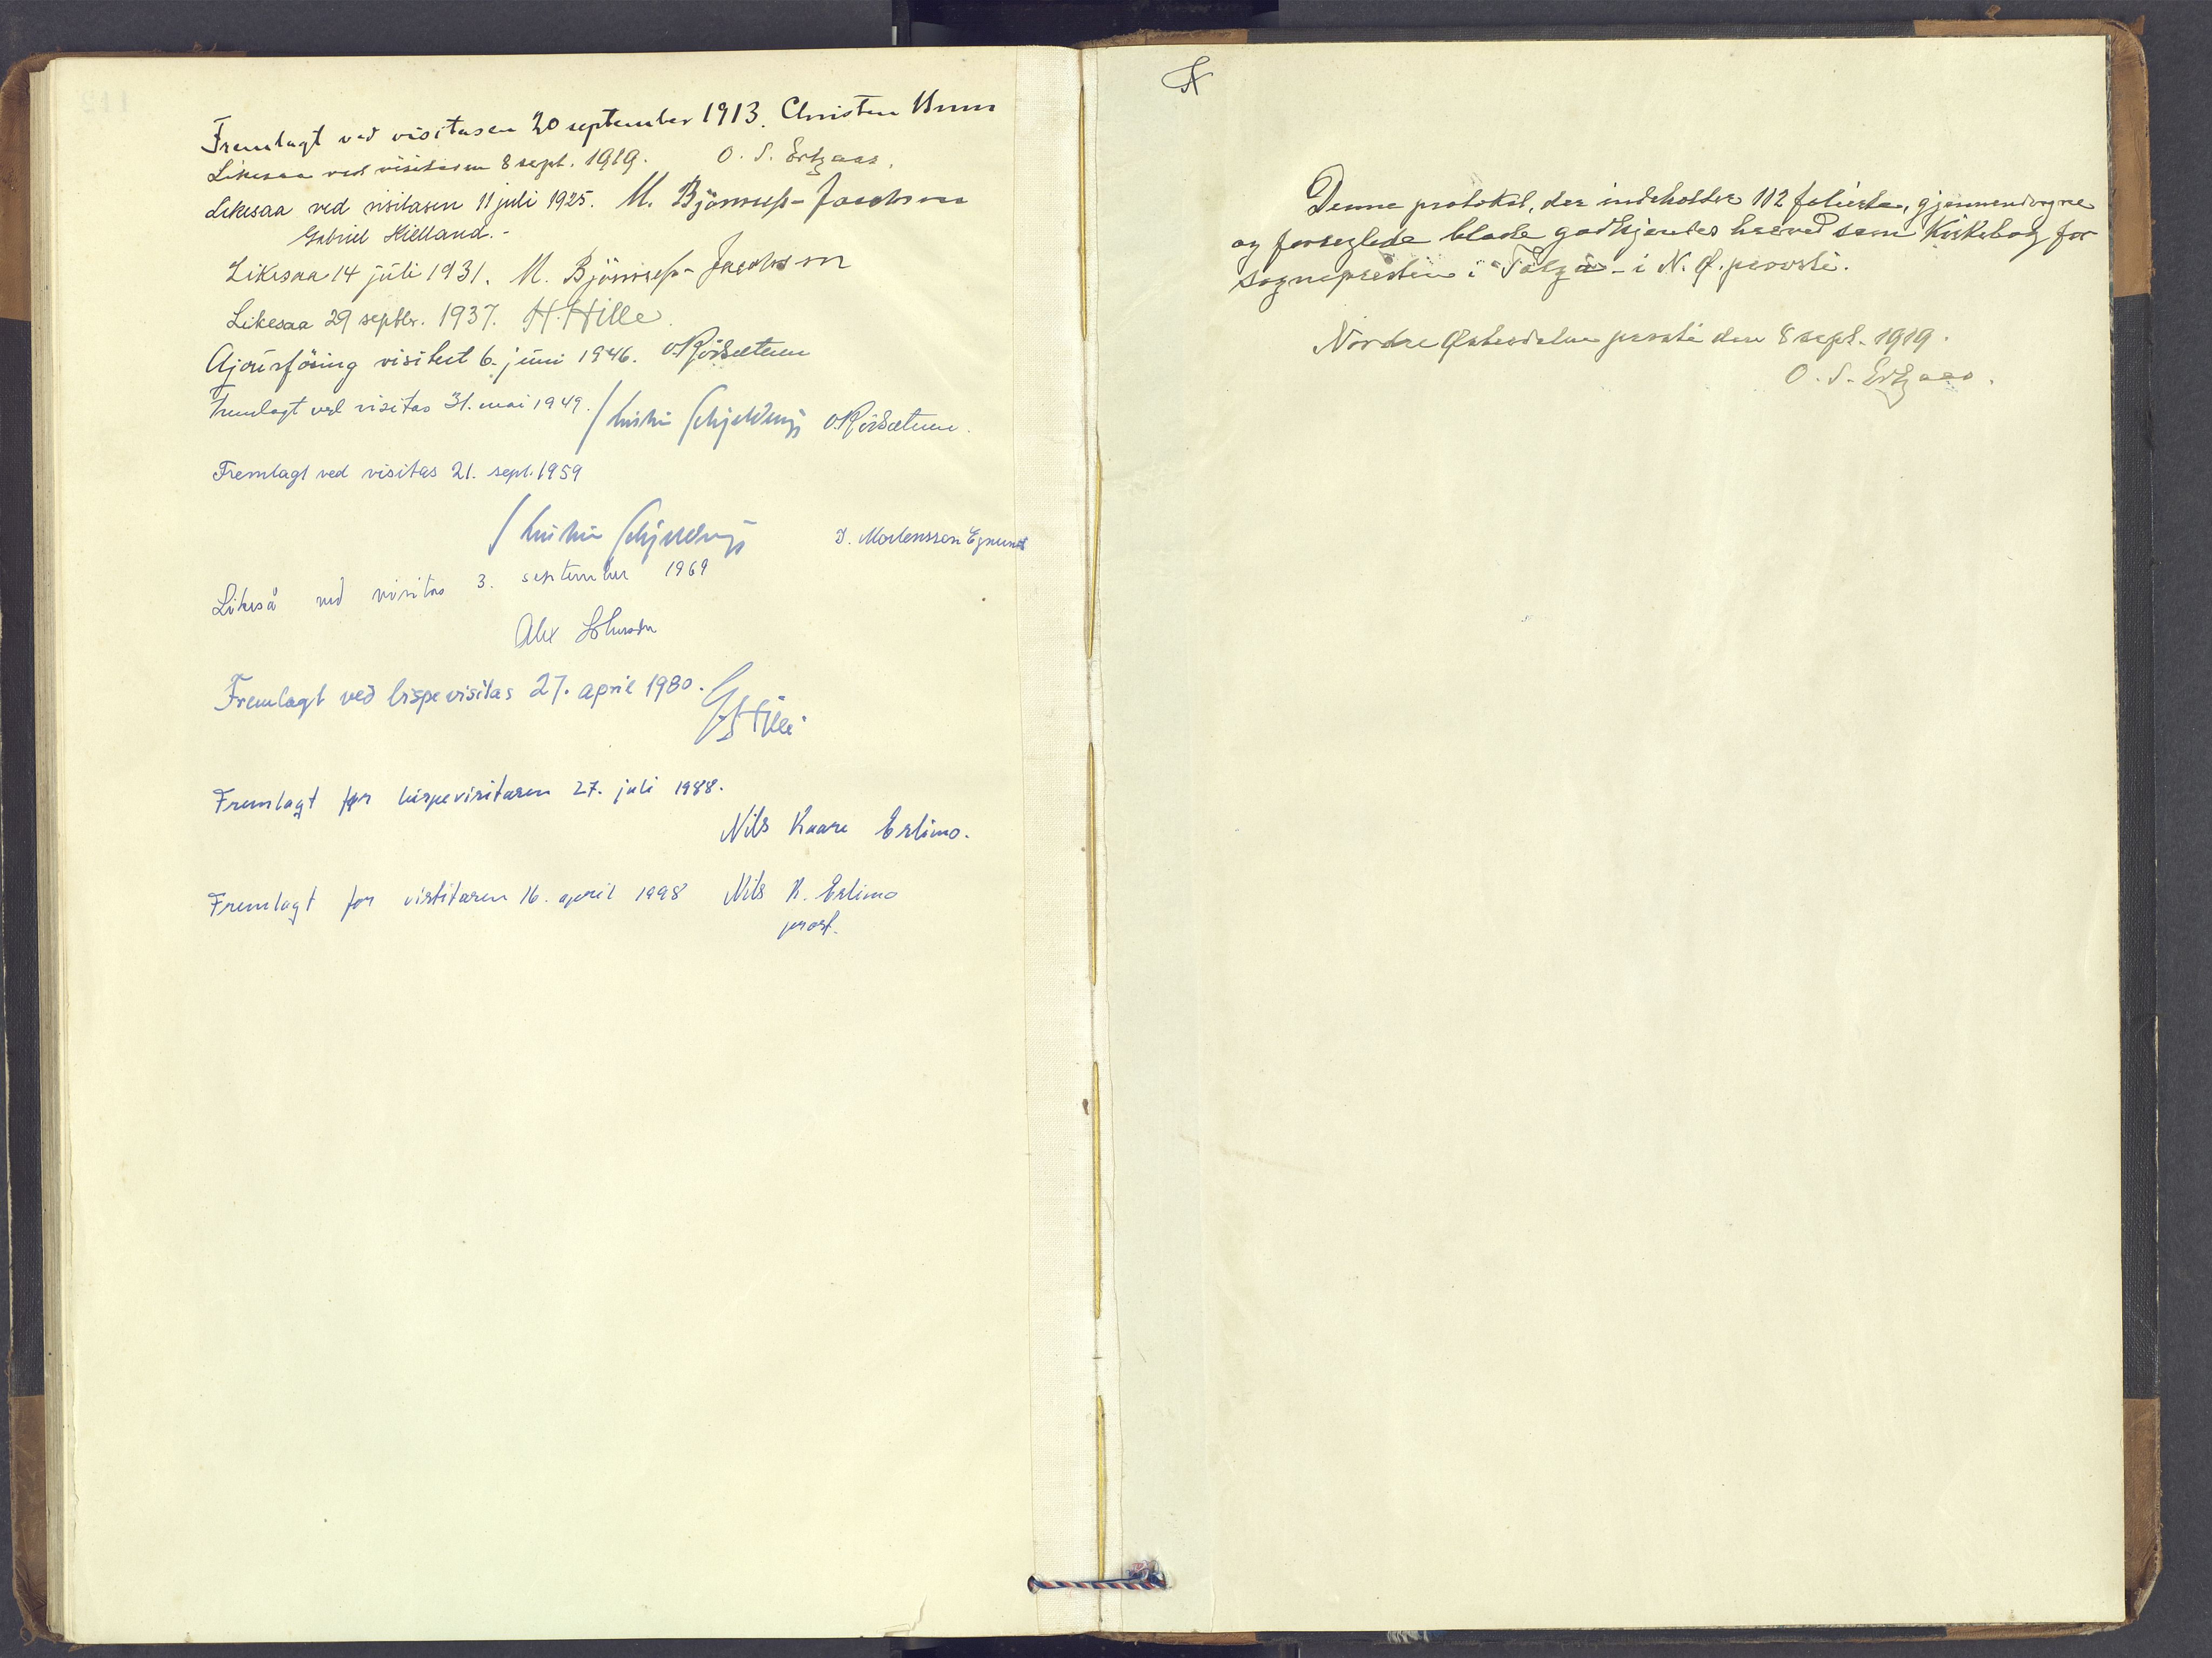 Fremlagt ved visitasen 20 september 1913. Christen Brun
Likesaa ved visitasen 8 sept. 1919. O. S. Ertzaas.
Likesaa ved visitasen 11 juli 1925. M. Bjønness-Jacobsen
Gabriel Kielland.-
Likesaa 14 juli 1931. M. Bjønness-Jacobsen
Likesaa 29 septbr. 1937. H. Hille
Ajourføring visitert 6. juni 1946. O. Rörsetum
Fremlagt ved visitas 31. mai 1949. / Kristian Schjelderup
Fremlagt ved visitas 21. sept. 1959
Kristian Schjelderup D. Mortensson Egnund
Likeså ved visitas 3. september 1969
Alex Johnson
Fremlagt ved bispevisitas 27. april 1980.
G. Hille
Fremlagt for bispevisitasen 27. juli 1988.
Nils Kaare Erlimo.
Fremlagt for vistitasen 16. april 1998 Nils K. Erlimo
prost.
Denne protokol, der indeholder 112 folierte, gjennemdragne
og forseglede blade godkjendes herved som Kirkebog for
sognepresten i Tolga - i N. Ø. provsti.
Nordre Østerdalen provsti den 8 sept. 1919.
O. S. Ertzaas.